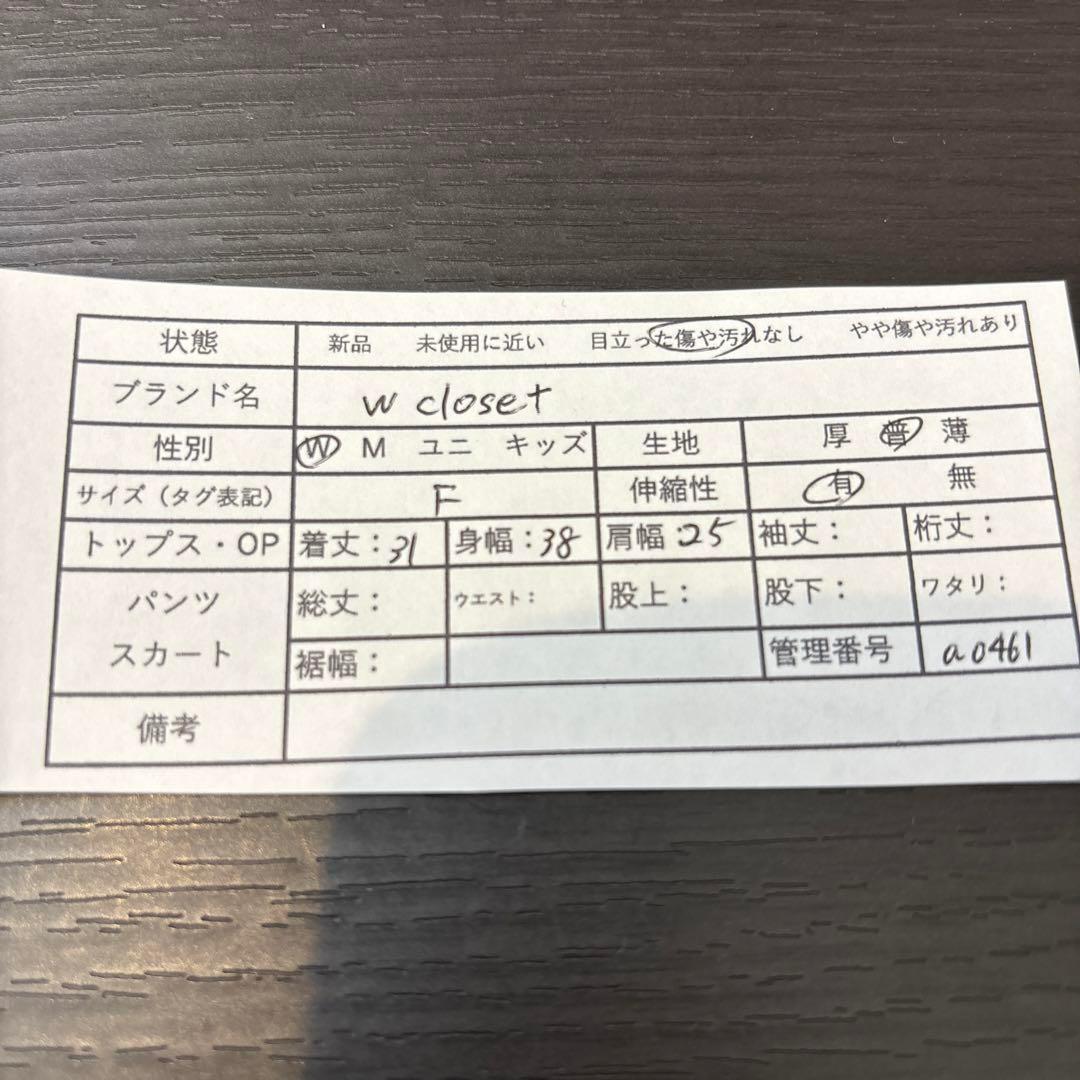 状態 新品 未使用に近い 目立った傷や汚れなし やや傷や汚れあり
ブランド名 w closet
性別 W M ユニ キッズ 生地 厚 普 薄
サイズ（タグ表記） F 伸縮性 有 無
トップス・OP 着丈：31 身幅：38 肩幅：25 袖丈： 裄丈：
パンツ 総丈： ウエスト： 股上： 股下： ワタリ：
スカート 裾幅： 管理番号 a0461
備考